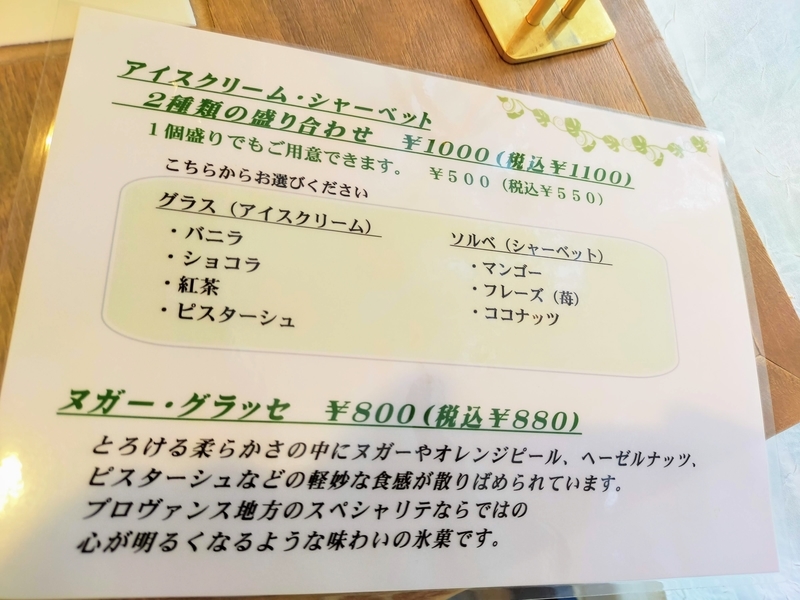 アイスクリーム・シャーベット
２種類の盛り合わせ　￥1000(税込￥1100)
１個盛りでもご用意できます。　￥５００（税込￥５５０）
こちらからお選びください
グラス（アイスクリーム）
・バニラ
・ショコラ
・紅茶
・ピスターシュ
ソルベ（シャーベット）
・マンゴー
・フレーズ（苺）
・ココナッツ
ヌガー・グラッセ　￥800(税込￥880)
とろける柔らかさの中にヌガーやオレンジピール、ヘーゼルナッツ、
ピスターシュなどの軽妙な食感が散りばめられています。
プロヴァンス地方のスペシャリテならではの
心が明るくなるような味わいの氷菓です。